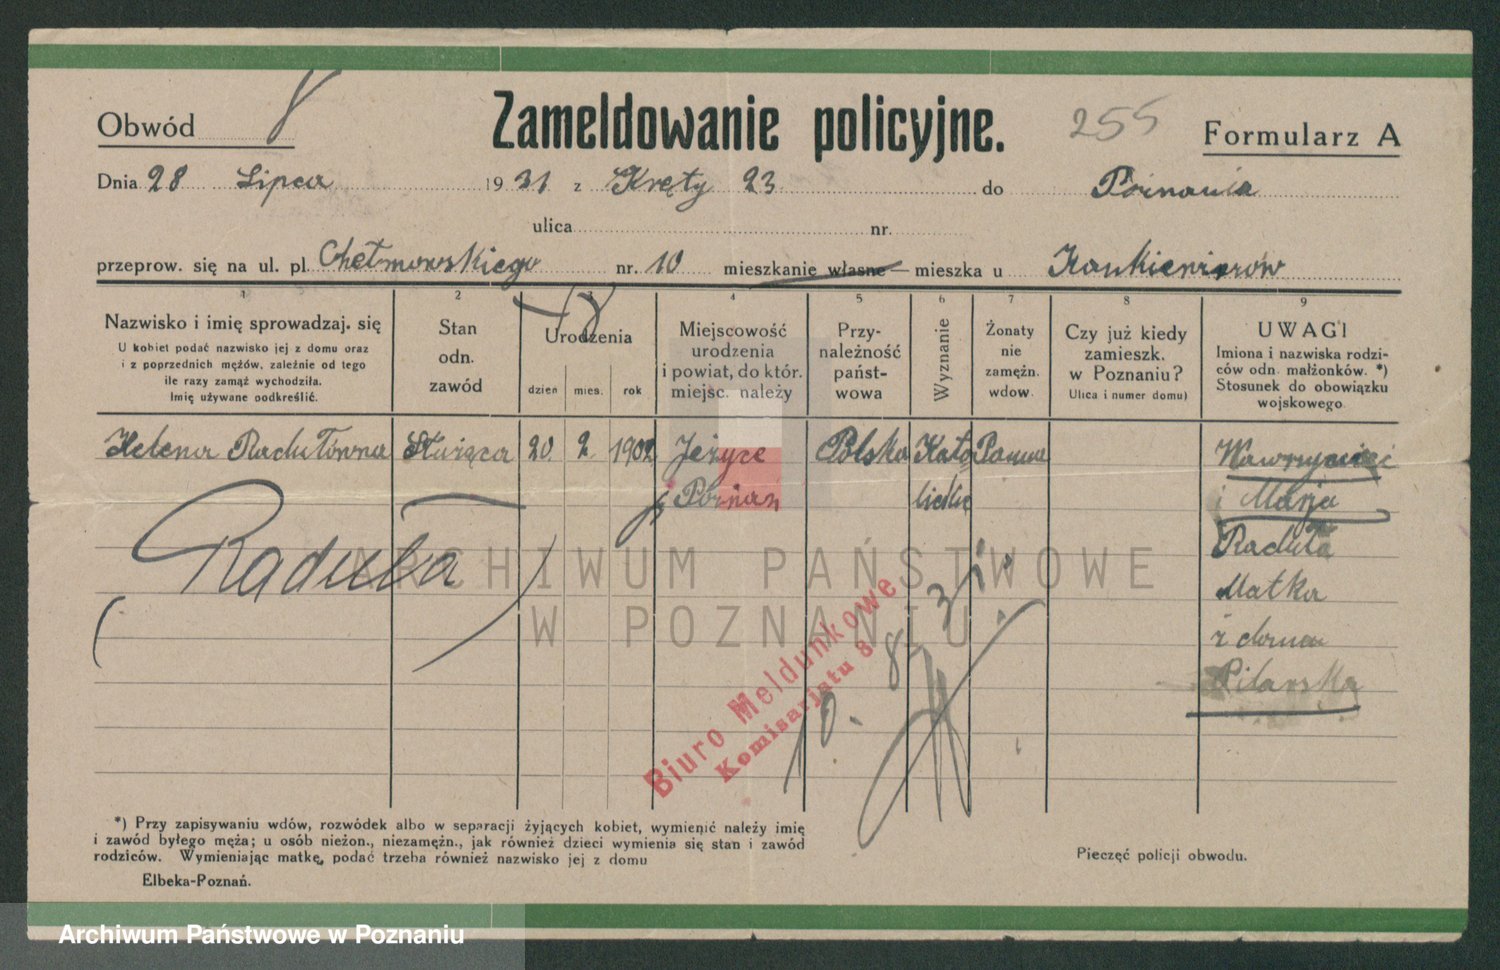 Zameldowanie policyjne.
Obwód 8
255
Formularz A
Dnia 28 Lipca 1931 z Kręty 23 do Poznania
ulica nr.
przeprow. się na ul. pl. Chełmowskiego nr. 10 mieszkanie własne mieszka u
1 2 3 4 5 6 7 8 9
Nazwisko i imię sprowadzaj. się
U kobiet podać nazwisko jej z domu oraz
i z poprzednich mężów, zależnie od tego
ile razy zamąż wychodziła.
Imię używane podkreślić.
Stan
odn.
zawód
Urodzenia
dzień mies. rok
Miejscowość
urodzenia
i powiat, do któr.
miejsc. należy
Przy-
należność
państ-
wowa
Wyznanie
Żonaty
nie
zamężn.
wdow.
Czy już kiedy
zamieszk.
w Poznaniu?
Ulica i numer domu)
UWAGI
Imiona i nazwiska rodzi-
ców odn. małżonków. *)
Stosunek do obowiązku
wojskowego
Helena Radułówna Służąca 20. 2. 1902 Jeżyce Polska Kato Panna
Poznań licka
Wawrzyniec
i Marja
Raduła
Matka
z domu
Pilarska
Raduła
ARCHIWUM PAŃSTWOWE
W POZNANIU
Biuro Meldunkowe
Komisarjatu 8.
*) Przy zapisywaniu wdów, rozwódek albo w separacji żyjących kobiet, wymienić należy imię
i zawód byłego męża; u osób nieżon., niezamężn., jak również dzieci wymienia się stan i zawód
rodziców. Wymieniając matkę, podać trzeba również nazwisko jej z domu
Pieczęć policji obwodu.
Elbeka-Poznań.
Archiwum Państwowe w Poznaniu